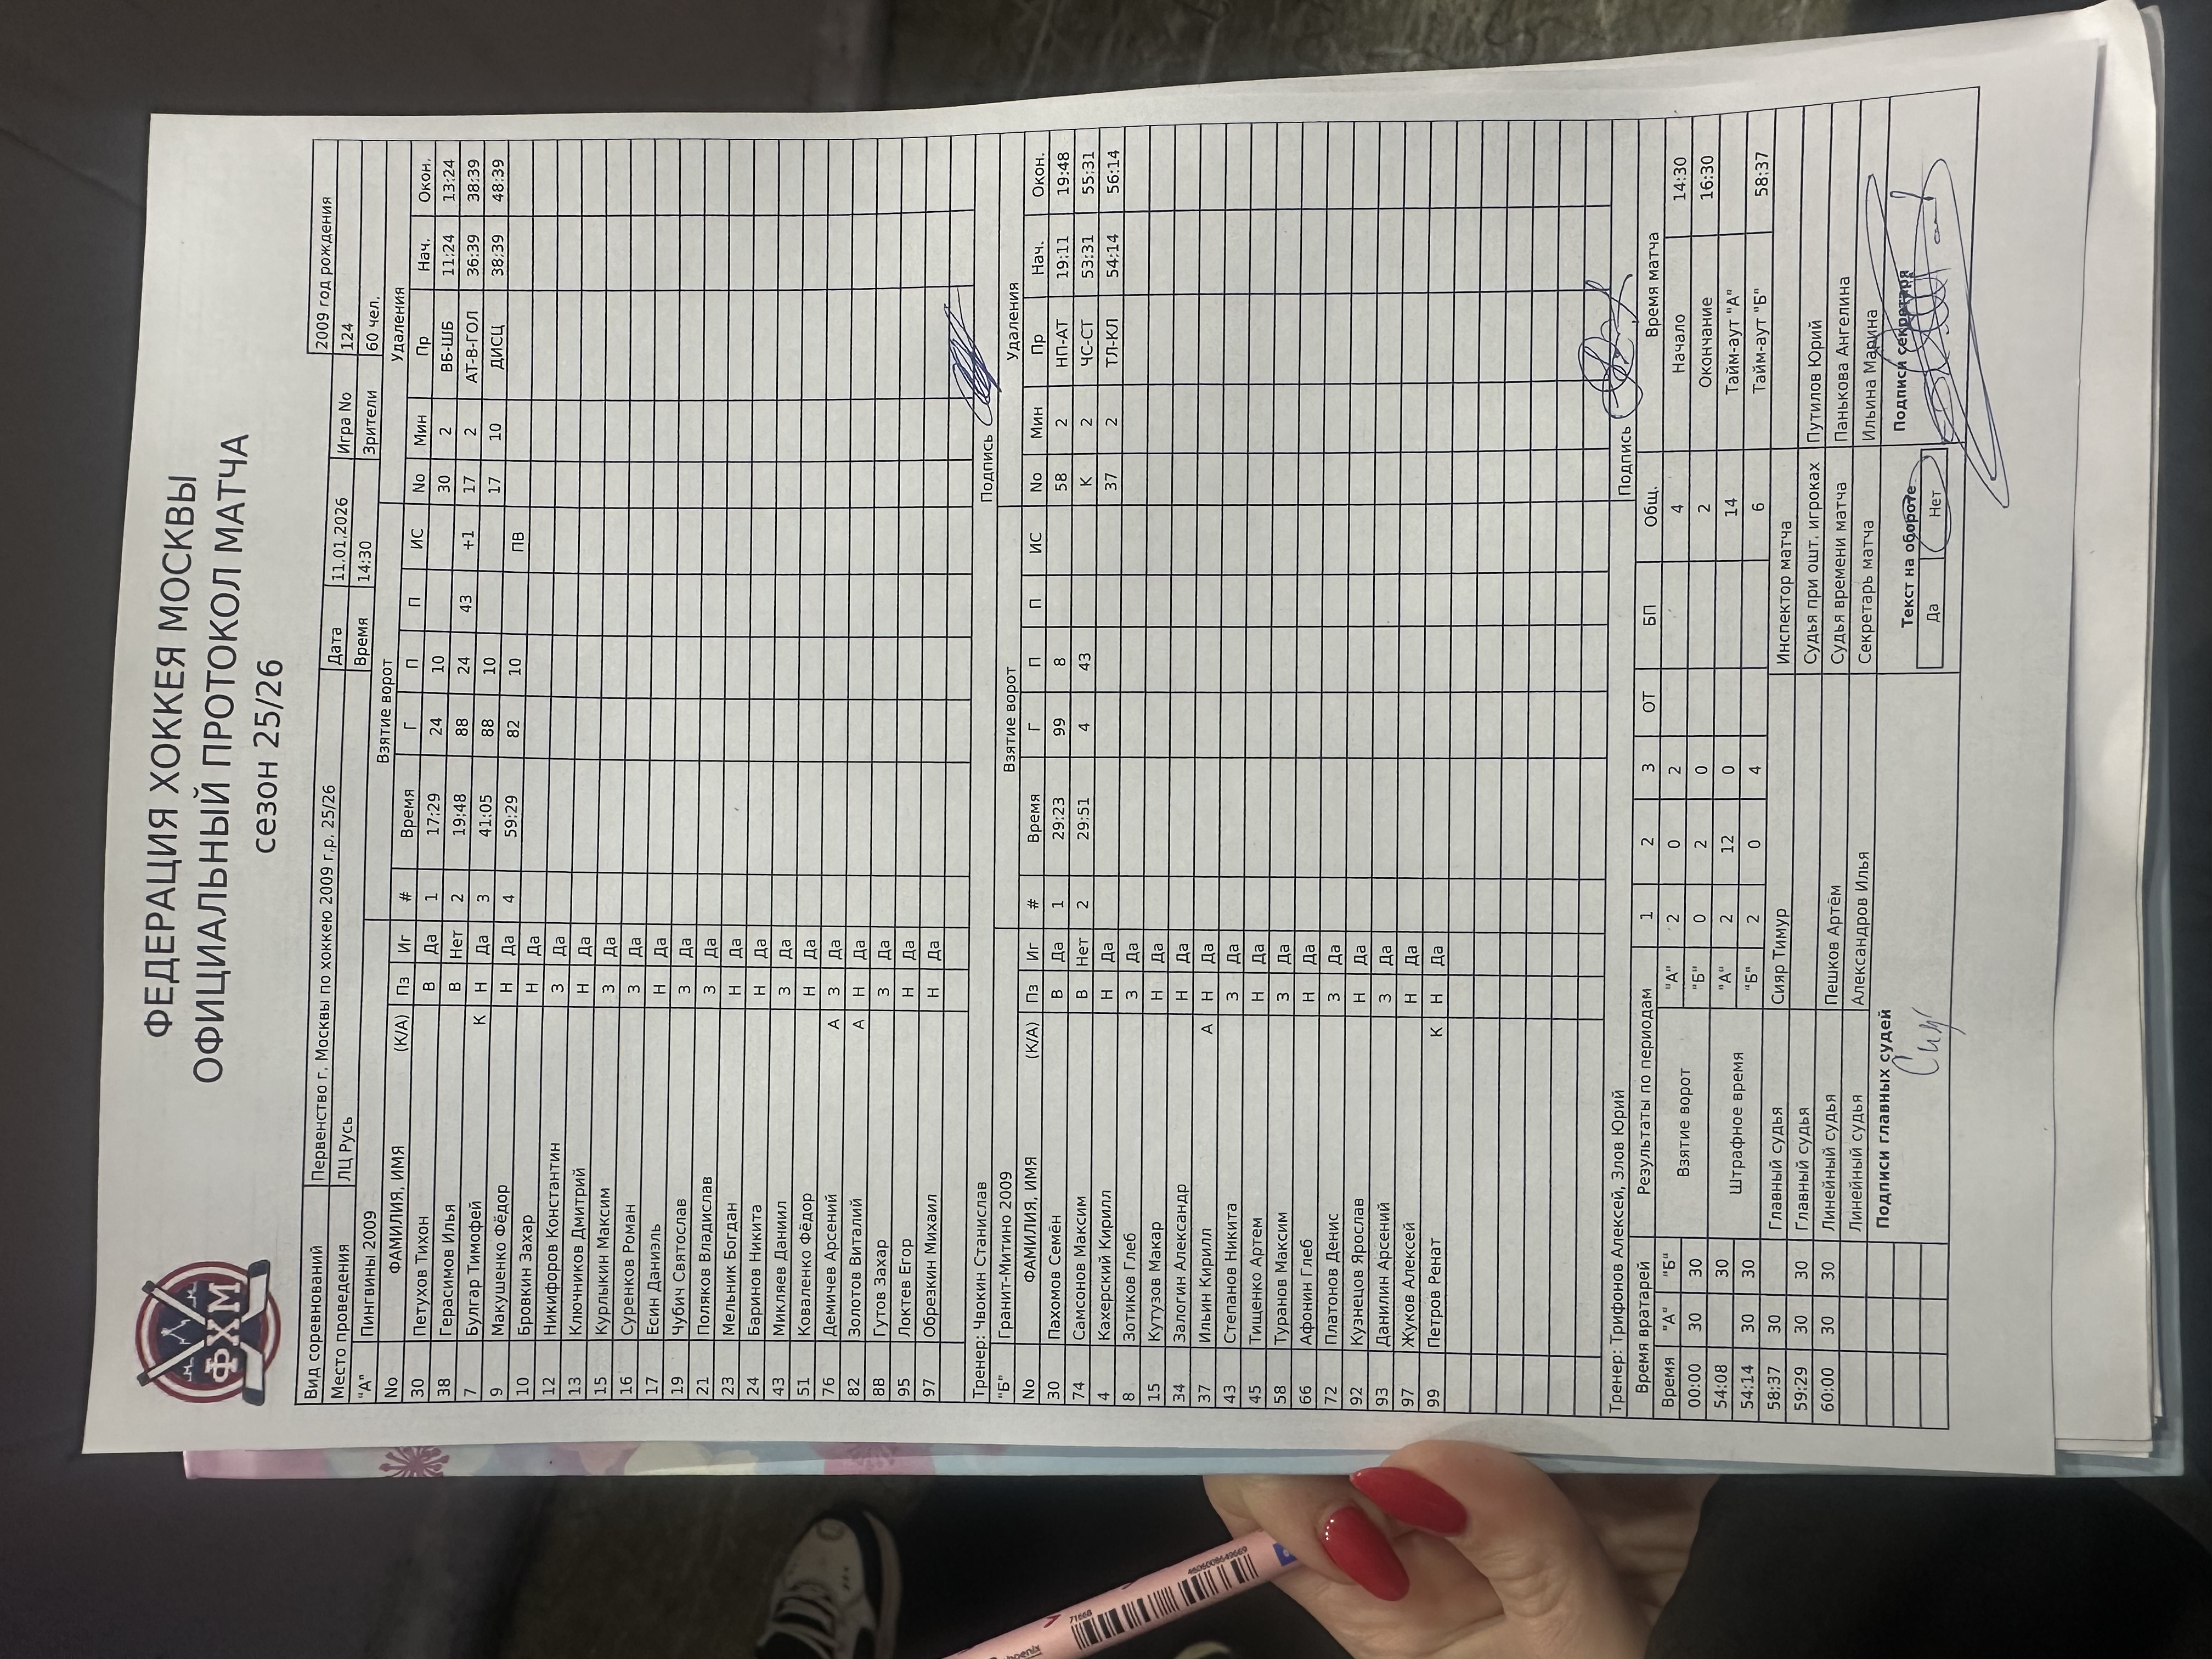 ФЕДЕРАЦИЯ ХОККЕЯ МОСКВЫ
ОФИЦИАЛЬНЫЙ ПРОТОКОЛ МАТЧА
сезон 25/26
ФХМ
Вид соревнований Первенство г. Москвы по хоккею 2009 г.р. 25/26 2009 год рождения
Место проведения ЛЦ Русь Дата 11.01.2026 Игра No 124
"А" Пингвины 2009 Время 14:30 Зрители 60 чел.
Взятие ворот Удаления
No ФАМИЛИЯ, ИМЯ (К/А) Пз Иг # Время Г П П ИС No Мин Пр Нач. Окон.
30 Петухов Тихон В Да 1 17:29 24 10 30 2 ВБ-ШБ 11:24 13:24
38 Герасимов Илья В Нет 2 19:48 88 24 43 +1 17 2 АТ-В-ГОЛ 36:39 38:39
7 Булгар Тимофей К Н Да 3 41:05 88 10 17 10 ДИСЦ 38:39 48:39
9 Макушенко Фёдор Н Да 4 59:29 82 10 ПВ
10 Бровкин Захар Н Да
12 Никифоров Константин З Да
13 Ключников Дмитрий Н Да
15 Курлыкин Максим З Да
16 Суренков Роман З Да
17 Есин Даниэль Н Да
19 Чубич Святослав З Да
21 Поляков Владислав З Да
23 Мельник Богдан Н Да
24 Баринов Никита Н Да
43 Микляев Даниил З Да
51 Коваленко Фёдор Н Да
76 Демичев Арсений А З Да
82 Золотов Виталий А Н Да
88 Гутов Захар З Да
95 Локтев Егор Н Да
97 Обрезкин Михаил Н Да
Тренер: Чвокин Станислав Подпись
"Б" Гранит-Митино 2009 Взятие ворот Удаления
No ФАМИЛИЯ, ИМЯ (К/А) Пз Иг # Время Г П П ИС No Мин Пр Нач. Окон.
30 Пахомов Семён В Да 1 29:23 99 8 58 2 НП-АТ 19:11 19:48
74 Самсонов Максим В Нет 2 29:51 4 43 К 2 ЧС-СТ 53:31 55:31
4 Кахерский Кирилл Н Да 37 2 ТЛ-КЛ 54:14 56:14
8 Зотиков Глеб З Да
15 Кутузов Макар Н Да
34 Залогин Александр Н Да
37 Ильин Кирилл А Н Да
43 Степанов Никита З Да
45 Тищенко Артем Н Да
58 Туранов Максим З Да
66 Афонин Глеб Н Да
72 Платонов Денис З Да
92 Кузнецов Ярослав Н Да
93 Данилин Арсений З Да
97 Жуков Алексей Н Да
99 Петров Ренат К Н Да
Тренер: Трифонов Алексей, Злов Юрий Подпись
Время вратарей Результаты по периодам 1 2 3 ОТ БП Общ. Время матча
Время "А" "Б" Взятие ворот "А" 2 0 2 4 Начало 14:30
00:00 30 30 "Б" 0 2 0 2 Окончание 16:30
54:08 30 Штрафное время "А" 2 12 0 14 Тайм-аут "А"
54:14 30 30 "Б" 2 0 4 6 Тайм-аут "Б" 58:37
58:37 30 Главный судья Сияр Тимур Инспектор матча
59:29 30 30 Главный судья Судья при ошт. игроках Путилов Юрий
60:00 30 30 Линейный судья Пешков Артём Судья времени матча Панькова Ангелина
Линейный судья Александров Илья Секретарь матча Ильина Марина
Подписи главных судей Текст на обороте Подписи секретаря
Да Нет
phoenix
71668
4606008649669